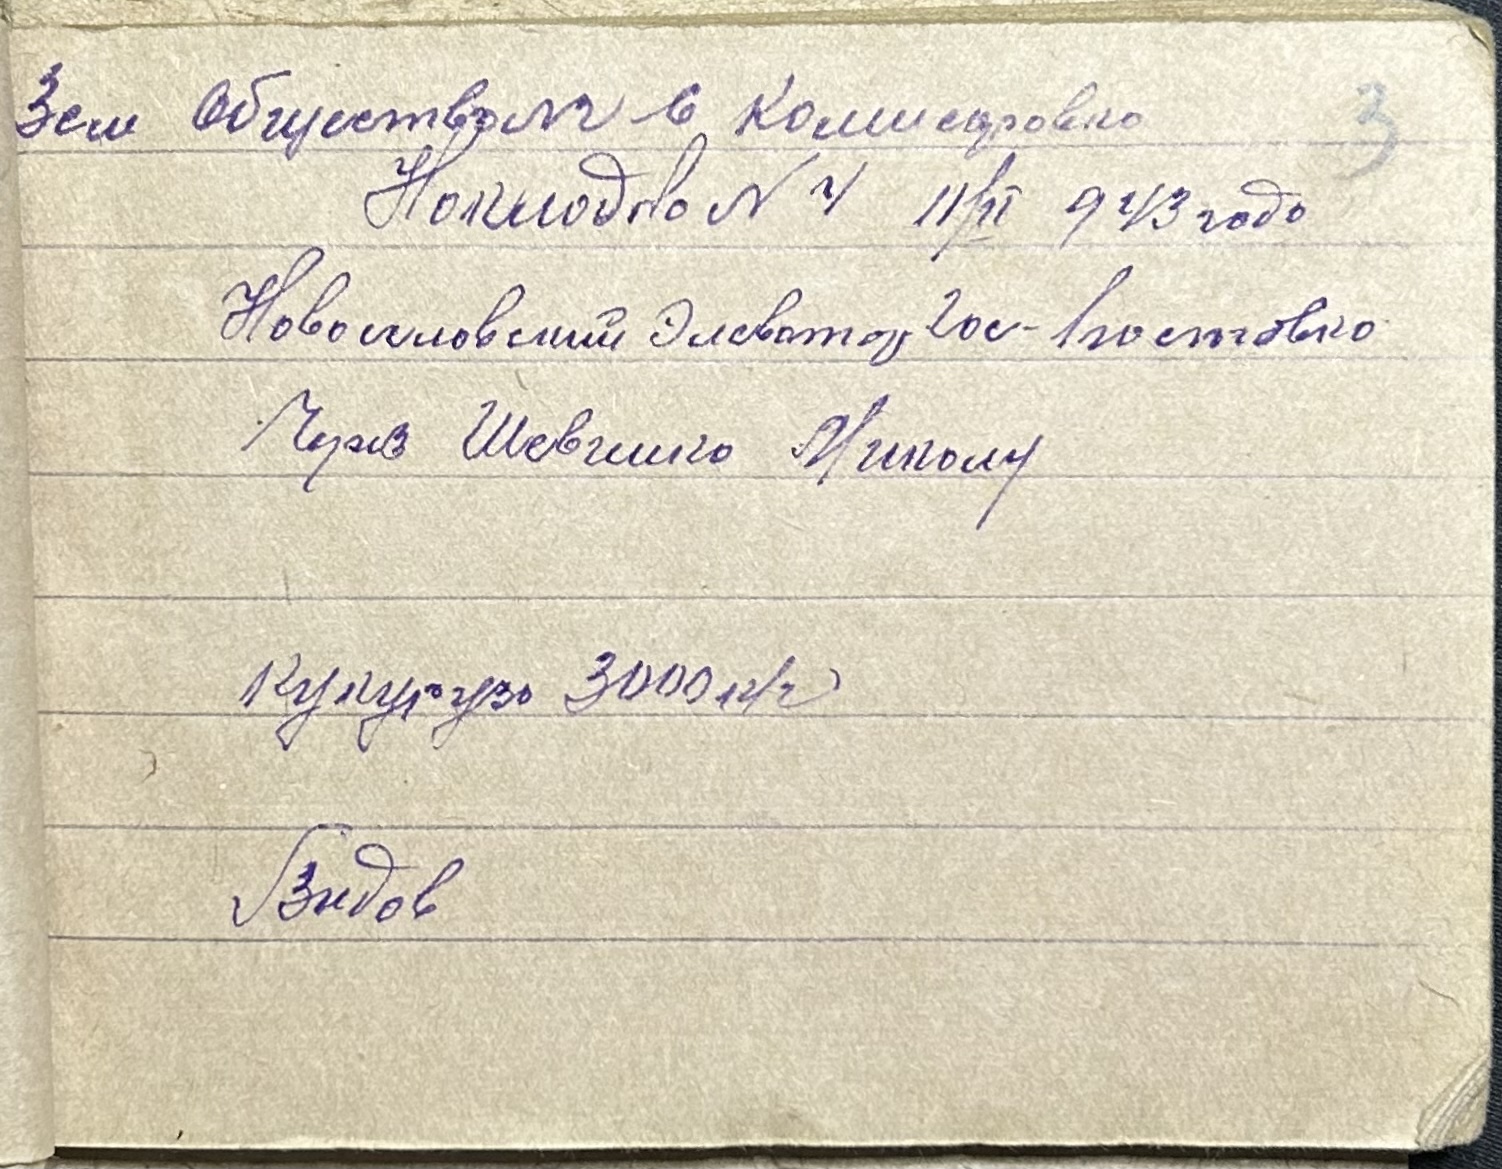 Зем Общество № 6 Комисаровка 3
Накладная № 4 11/VI 943 года
Новоселовский Элеватор Гос-поставка
Через Шевченко Миколу
Кукуруза 3000 к/г